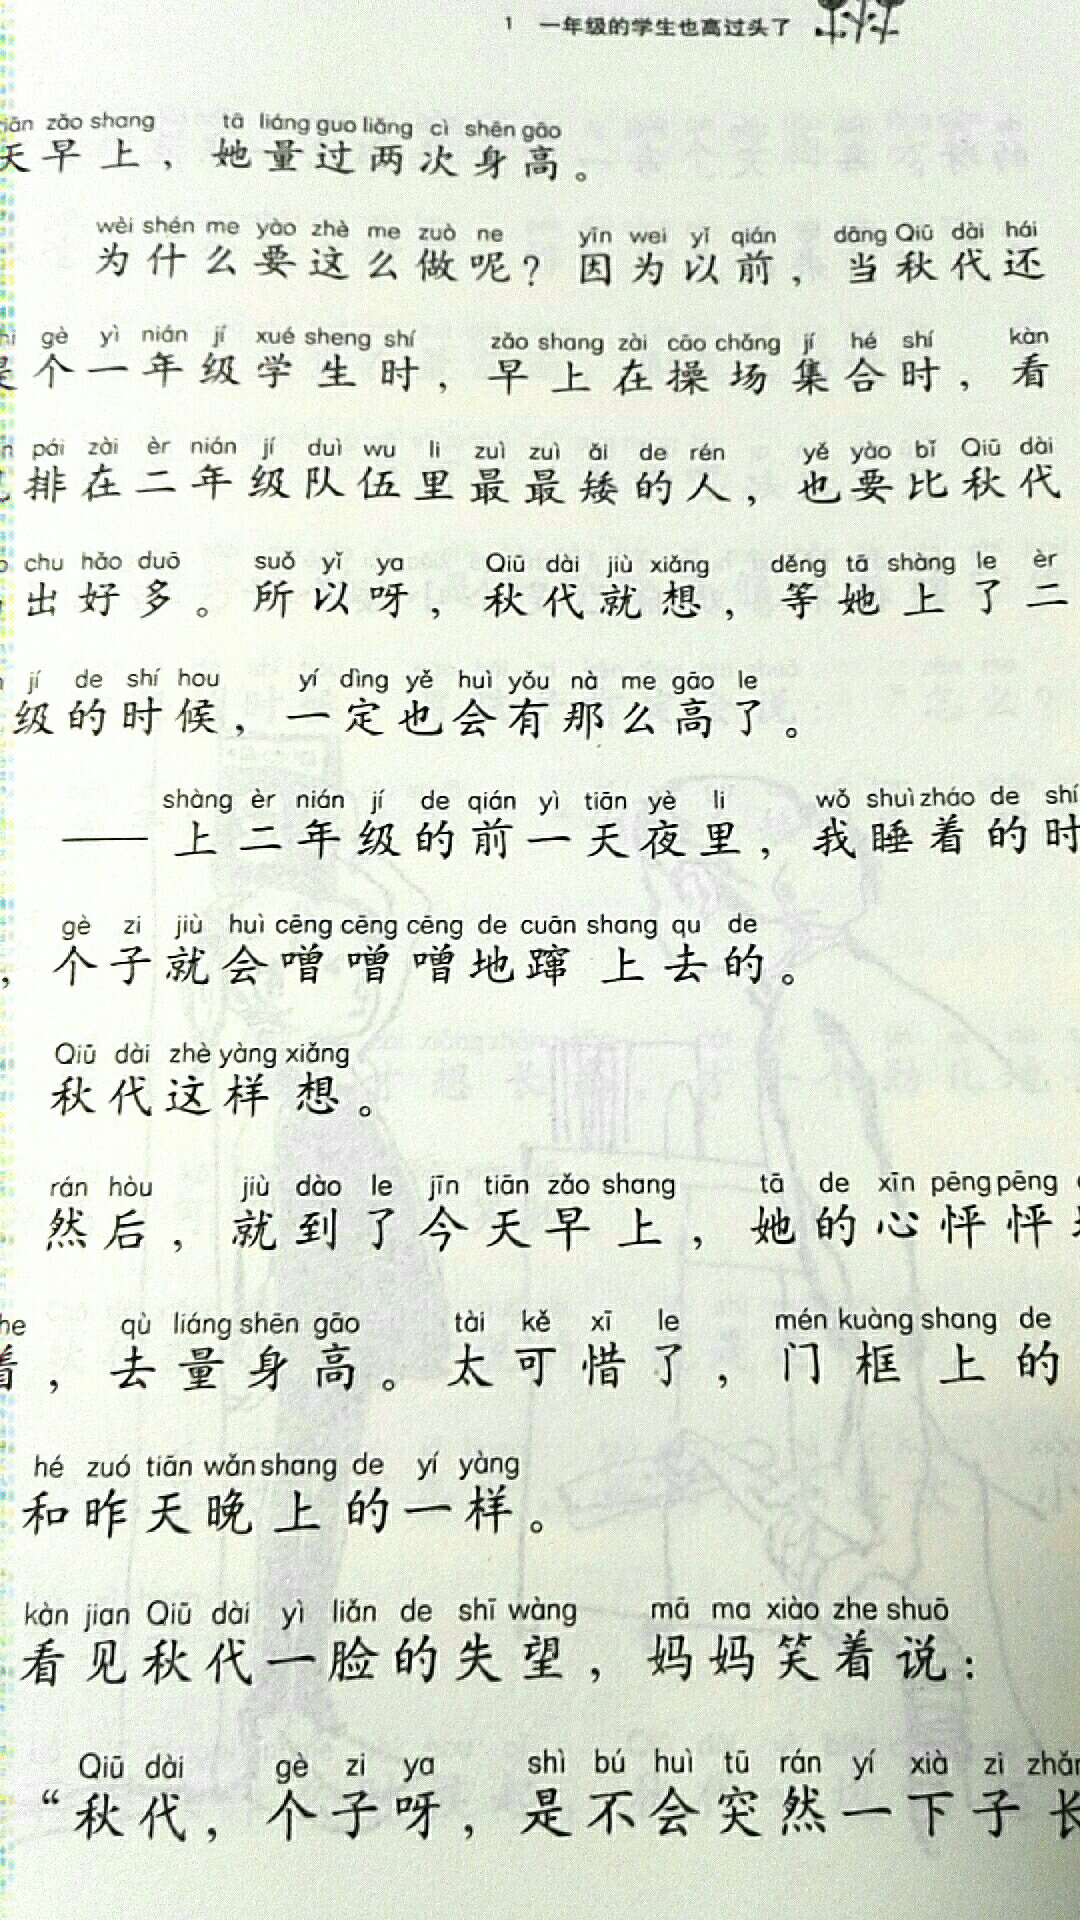 1 一年级的学生也高过头了
zǎo shang tā liáng guo liǎng cì shēn gāo
天早上，她量过两次身高。
wèi shén me yào zhè me zuò ne yīn wei yǐ qián dāng Qiū dài hái
为什么要这么做呢？因为以前，当秋代还
gè yì nián jí xué sheng shí zǎo shang zài cāo chǎng jí hé shí kàn
个一年级学生时，早上在操场集合时，看
pái zài èr nián jí duì wu li zuì zuì ǎi de rén yě yào bǐ Qiū dài
排在二年级队伍里最最矮的人，也要比秋代
chu hǎo duō suǒ yǐ ya Qiū dài jiù xiǎng děng tā shàng le èr
出好多。所以呀，秋代就想，等她上了二
jí de shí hou yí dìng yě huì yǒu nà me gāo le
级的时候，一定也会有那么高了。
shàng èr nián jí de qián yì tiān yè li wǒ shuì zháo de shí
——上二年级的前一天夜里，我睡着的时
gè zi jiù huì cēng cēng cēng de cuān shang qu de
，个子就会噌噌噌地蹿上去的。
Qiū dài zhè yàng xiǎng
秋代这样想。
rán hòu jiù dào le jīn tiān zǎo shang tā de xīn pēng pēng
然后，就到了今天早上，她的心怦怦
qù liáng shēn gāo tài kě xī le mén kuàng shang de
着，去量身高。太可惜了，门框上的
hé zuó tiān wǎn shang de yí yàng
和昨天晚上的一样。
kàn jian Qiū dài yì liǎn de shī wàng mā ma xiào zhe shuō
看见秋代一脸的失望，妈妈笑着说：
Qiū dài gè zi ya shì bú huì tū rán yí xià zi zhǎng
“秋代，个子呀，是不会突然一下子长